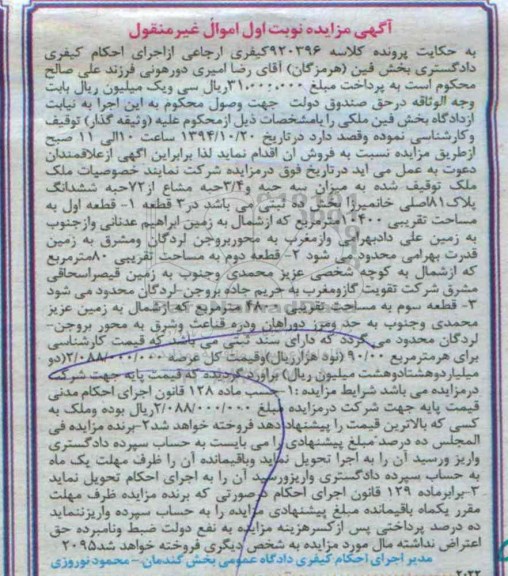 آگهی مزایده نوبت اول اموال غیرمنقول
به حکایت پرونده کلاسه ۹۲۰۳۹۶کیفری ارجاعی ازاجرای احکام کیفری
دادگستری بخش فین (هرمزگان) آقای رضا امیری دورهونی فرزند علی صالح
محکوم است به پرداخت مبلغ ۳۱۰۰۰:۰۰۰ریال سی ویک میلیون ریال بابت
وجه الوثاقه درحق صندوق دولت جهت وصول محکوم به این اجرا به نیابت
ازدادگاه بخش فین ملکی را بامشخصات ذیل ازمحکوم علیه (وثیقه گذار) توقیف
وکارشناسی نموده وقصد دارد درتاریخ ۱۳۹۴/۱۰/۲۰ ساعت ۱۰الی ۱۱ صبح
ازطریق مزایده نسبت به فروش ان اقدام نماید لذا برابراین اگهی ازعلاقمندان
دعوت به عمل می اید درتاریخ فوق درمزایده شرکت نمایند خصوصیات ملک
ملک توقیف شده به میزان سه حبه و۳/۴حبه مشاع از۷۲حبه ششدانگ
پلاک۸۱اصلی خانمیرزا بخش ده ثبتی می باشد در۳ قطعه ۱- قطعه اول به
مساحت تقریبی ۱۱۴۰۰مترمربع که ازشمال به زمین ابراهیم عدنانی وازجنوب
به زمین علی دادبهرمی وازمغرب به محوربروجن لردگان ومشرق به زمین
قدرت بهرامی محدود می شود ۲- قطعه دوم به مساحت تقریبی ۸۰مترمربع
که ازشمال به کوچه شخصی عزیز محمدی وجنوب به زمین قیصراسحاقی
مشرق شرکت تقویت گازومغرب به حریم جاده بروجن-لردگان محدود می شود
۳- قطعه سوم به مساحت تقریبی مترمربع که ازشمال به زمین عزیز
محمدی وجنوب به حد ومرز دوراهان ودره قناعت وشرق به محور بروجن-
لردگان محدود می گردد که دارای سند ثبتی می باشد که قیمت کارشناسی
برای هرمترمربع ۹۰/۰۰ (نود هزارریال)وقیمت کل عرصه ۲/۰۸۸/۰۰۰/۰۰۰(دو
میلیاردوهشتادوهشت میلیون ریال) براورد گردیده که قیمت پایه جهت شرکت
درمزایده می باشد شرایط مزایده :۱- حسب ماده ۱۲۸ قانون اجرای احکام مدنی
قیمت پایه جهت شرکت درمزایده مبلغ ۲/۰۸۸/۰۰۰/۰۰۰ریال بوده وملک به
کسی که بالاترین قیمت را پیشنهاد دهد فروخته خواهد شد۲-برنده مزایده فی
المجلس ده درصد مبلغ پیشنهادی را می بایست به حساب سپرده دادگستری
واریز ورسید آن را به اجرا تحویل نماید وباقیمانده آن را ظرف مهلت یک ماه
به حساب سپرده دادگستری واریزورسید آن را به اجرای احکام تحویل نماید
۳-برابرماده ۱۲۹ قانون اجرای احکام درصورتی که برنده مزایده ظرف مهلت
مقرر یکماه باقیمانده مبلغ پیشنهادی مزایده را به حساب سپرده واریزننماید
ده درصد پرداختی پس ازکسرهزینه مزایده به نفع دولت ضبط ونامبرده حق
اعتراض نداشته مال مورد مزایده به شخص دیگری فروخته خواهد شد۲۰۹۵
مدیر اجرای احکام کیفری دادگاه عمومی بخش گندمان - محمود نوروزی
۲۰۲۲